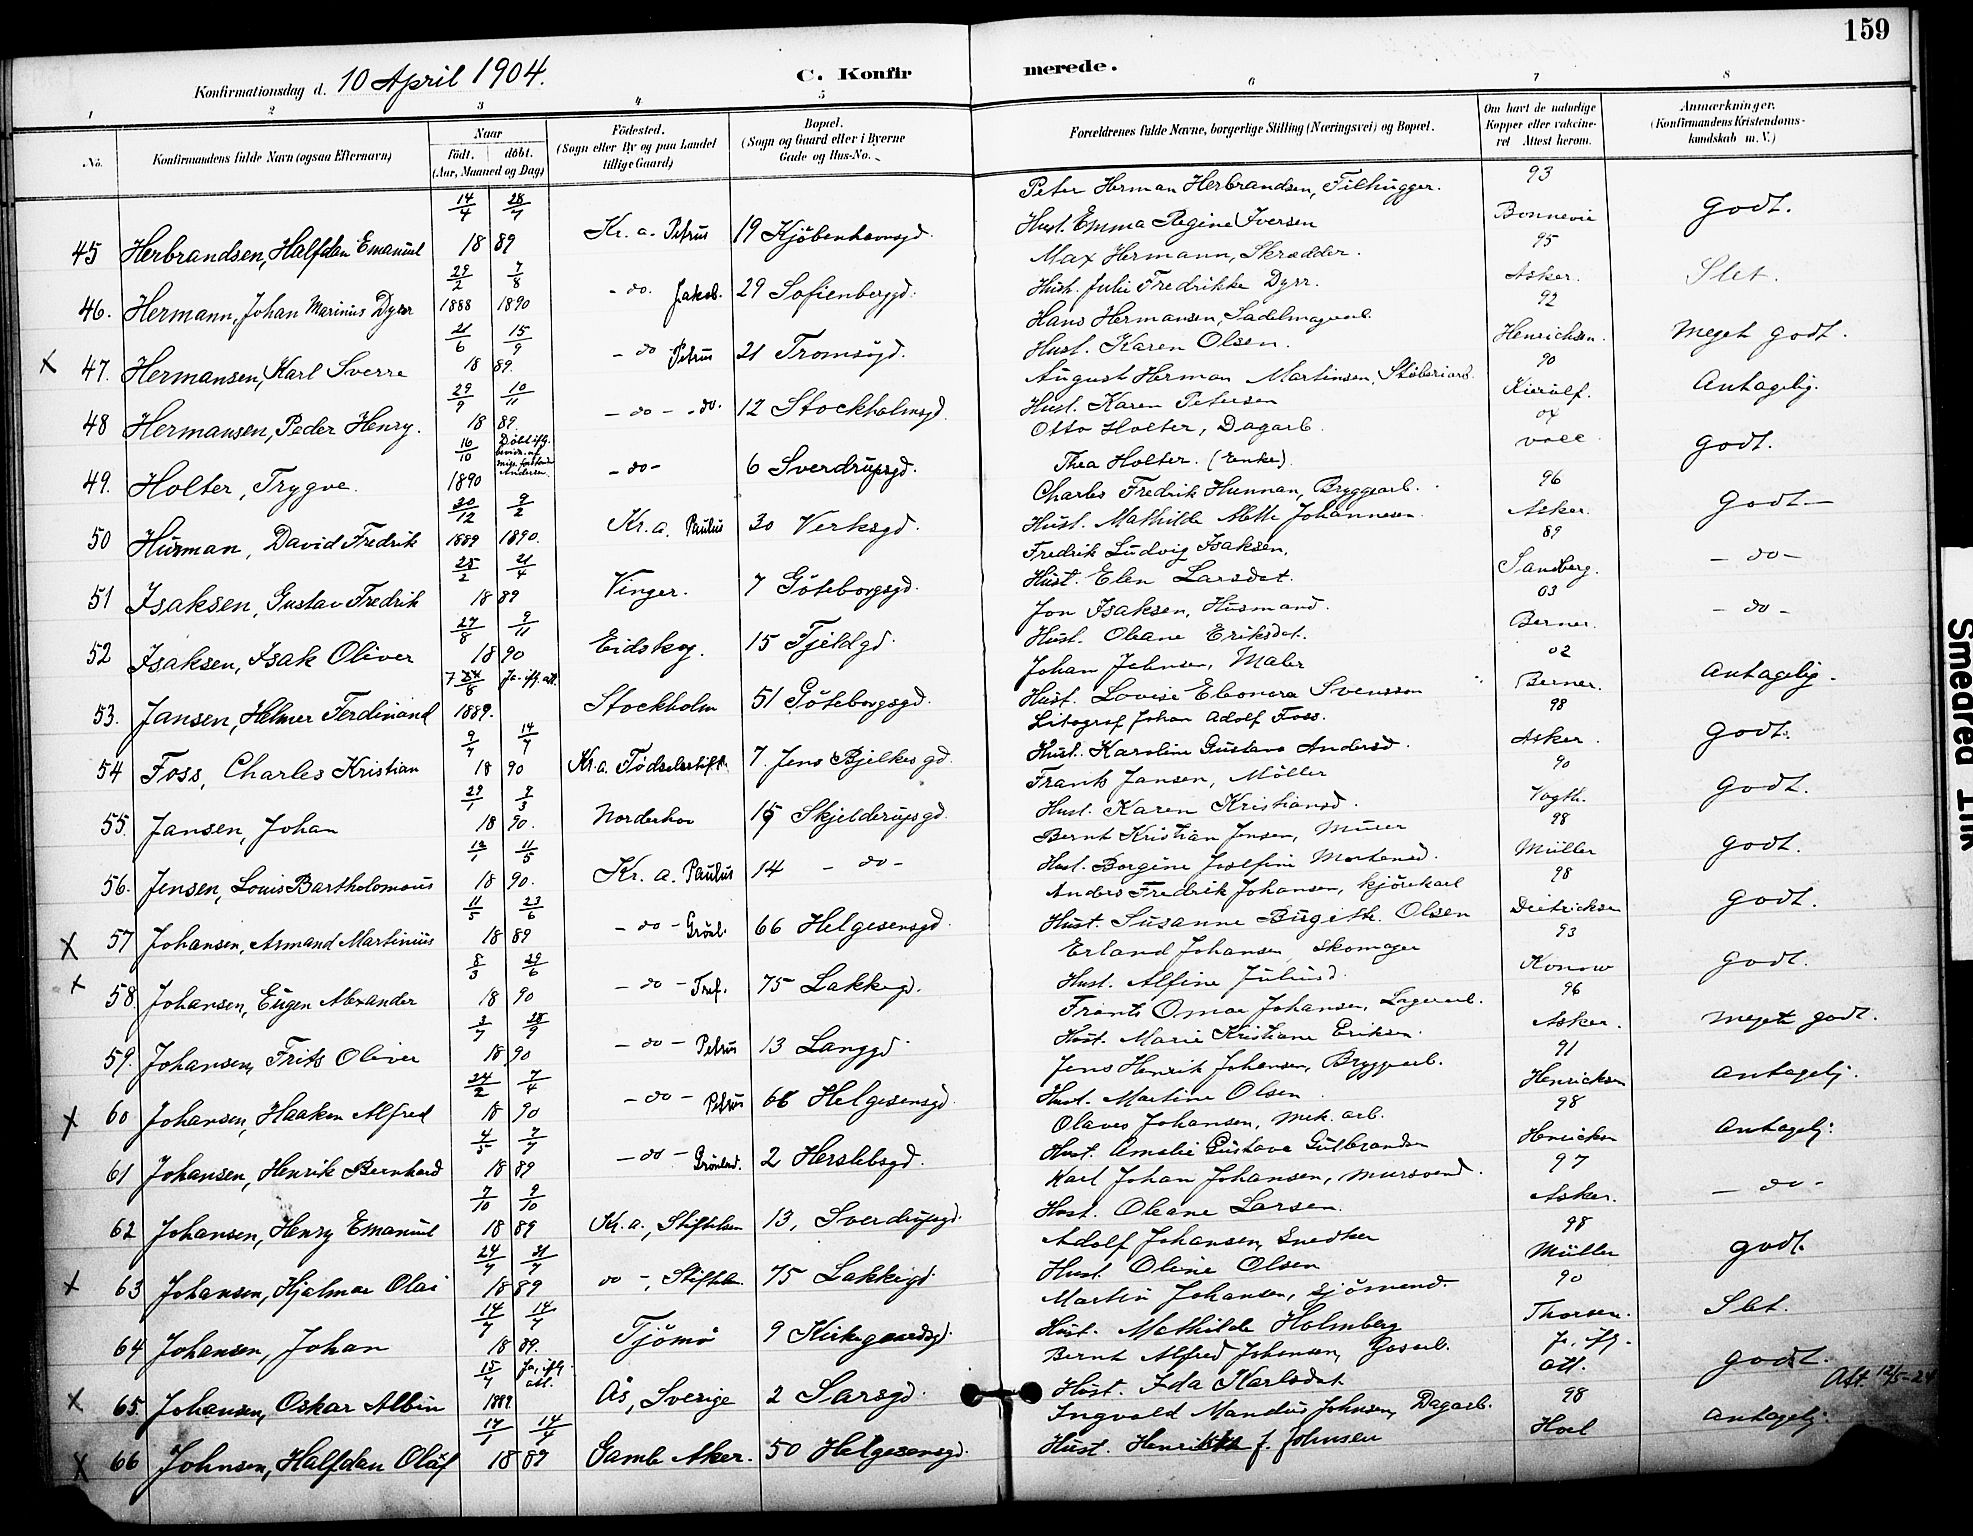 159
Konfirmationsdag d. 10 April 1904. C. Konfirmerede.
1 2 3 4 5 6 7 8
No. Konfirmandens fulde Navn (ogsaa Efternavn) Naar født. døbt. (Aar, Maaned og Dag) Fødested. (Sogn eller By og paa Landet tillige Gaard) Bopæl. (Sogn og Gaard eller i Byerne Gade og Hus-No. Forældrenes fulde Navne, borgerlige Stilling (Næringsvei) og Bopæl. Om havt de naturlige Kopper eller vakcineret Attest herom. Anmærkninger. (Konfirmandens Kristendomskundskab m. V.)
14/4 28/7 Peter Herman Herbrandsen, Filhugger. 93
45 Herbrandsen, Halfdan Emanuel 18 89 Kr.a. Petrus 19 Kjøbenhavnsgd. Hust. Emma Regine Iversen Bonnevie Godt.
29/2 7/8 Max Hermann, Skrædder. 95
46. Hermann, Johan Marinius Dyrr 1888 1890 - do. Jakob. 29 Sofienberggd. Hust. Julie Fredrikke Dyrr. Asker. Slet.
21/6 15/9 Hans Hermansen, Sadelmagerarb. 92
X 47. Hermansen, Karl Sverre 18 89. - do - Petrus 21 Tromsøgd. Hust. Karen Olsen. Henrichsen. Meget godt.
29/9 10/11 August Herman Martinsen, Støberiarb. 90
48 Hermansen, Peder Henry. 18 89. - do - - do. 12 Stockholmsgd. Hust. Karen Petersen Kierulf. Antagelig.
16/10 Otto Holter, Dagarb.
49. Holter, Trygve. 1890 - do - 6 Sverdrupsgd. Thea Holter. (Enke). Godt.
20/12 9/2 Charles Fredrik Hunman, Bryggearb. 96
50 Hunman, David Fredrik 1889 1890. Kr.a. Paulus 30 Verksgd. Hust. Mathilde Aleth Johannesen Asker. Godt -
25/2 21/4 Fredrik Ludvig Isaksen, 89
51 Isaksen, Gustav Fredrik 18 89 Vinger. 7 Göteborgsgd. Hust. Elen Larsdat. Sandberg. - do -
27/8 9/11 Jon Isaksen, Husmand. 03
52 Isaksen, Isak Oliver 18 90 Eidskog. 15 Fjeldgd. Hust. Oleane Eriksdat. Berner. - do -
24/8 Ja. iflg. att. Johan Johnsen, Maler 02
53. Jansen, Helmer Ferdinand 1889. Stockholm 51 Göteborgsgd. Hust. Lovise Eleonora Svensson Berner. Antagelig.
9/7 14/7 Litograf Johan Adolf Foss. 98
54 Foss, Charles Kristian 18 90 Kr.a. Fødselsstift. 7. Jens Bjelkesgd. Hust. Karoline Gustava Andersd. Asker. Godt.
29/1 9/3 Frants Jansen, Møller 90
55. Jansen, Johan 18 90. Norderhov 15 Skjelderupsgd. Hust. Karen Kristiansd. Vogth. Godt.
12/1 11/5 Bernt Kristian Jensen, Murer 98
56. Jensen, Louis Bartholomæus 18 90. Kr.a. Paulus 14 - do - Hust. Borgine Josefine Mortensd. Müller Godt.
11/5 23/6 Anders Fredrik Johansen, Kjørekarl 98
X 57 Johansen, Armand Martinius 18 89 - do - Grønl. 66 Helgesensgd. Hust. Susanne Birgith. Olsen Dietrichsen Godt.
8/3 29/6 Erland Johansen Skomager 93
X 58 Johansen, Eugen Alexander 18 90 - do - Tref. 75 Lakkegd. Hust. Alfine Juliusd. Konow Godt.
3/7 28/9 Frants Omar Johansen, Lagerarb. 96
59. Johansen, Frits Oliver 18 90 - do - Petrus 13 Langgd. Hust. Marie Kristiane Eriksen. Asker. Meget godt.
24/2 7/4 Jens Henrik Johansen, Bryggearb. 91
X 60 Johansen, Haakon Alfred 18 90 - do - Petrus 66 Helgesensgd. Hust. Martine Olsen Henrichsen Antagelig.
4/5 7/7 Olaves Johansen, Mek. arb. 98
61 Johansen, Henrik Bernhard 18 89 - do - Grønland. 2 Herslebsgd. Hust. Amalie Gustava Gulbrandsen Henrichsen Antagelig.
7/10 9/10 Karl Johan Johansen, Mursvend. 97
62 Johansen, Henry Emanuel 18 89 Kr.a., Stiftelsen 13, Sverdrupsgd. Hust. Oleane Larsen. Asker. - do -
24/7 31/7 Adolf Johansen, Snedker 98
X 63 Johansen, Hjalmar Olai 18 89 do -, Stiftelsen 75 Lakkegd. Hust. Oline Olsen Müller godt.
14/7 14/7 Martin Johansen, Sjømand. 90
64 Johansen, Johan 18 89. Tjømø 9 Kirkegaardsgd. Hust. Mathilde Holmberg Thorsen. Slet.
15/7 Ja, iflg. att. Bernt Alfred Johansen, Gasarb. Ja, iflg.
X 65. Johansen, Oskar Albin 1889 Ås, Sverige 2 Sarsgd. Hust. Ida Karlsdat. att. godt. Att. 12/5-24
14/4 Ingvald Mandus Johnsen, Dagarb. 98
X 66 Johnsen, Halfdan Oluf 18 89 Gamle Aker. 50 Helgesensgd. Hust. Henrikke J. Johnsen Hoel Antagelig.
Smedrød Tun